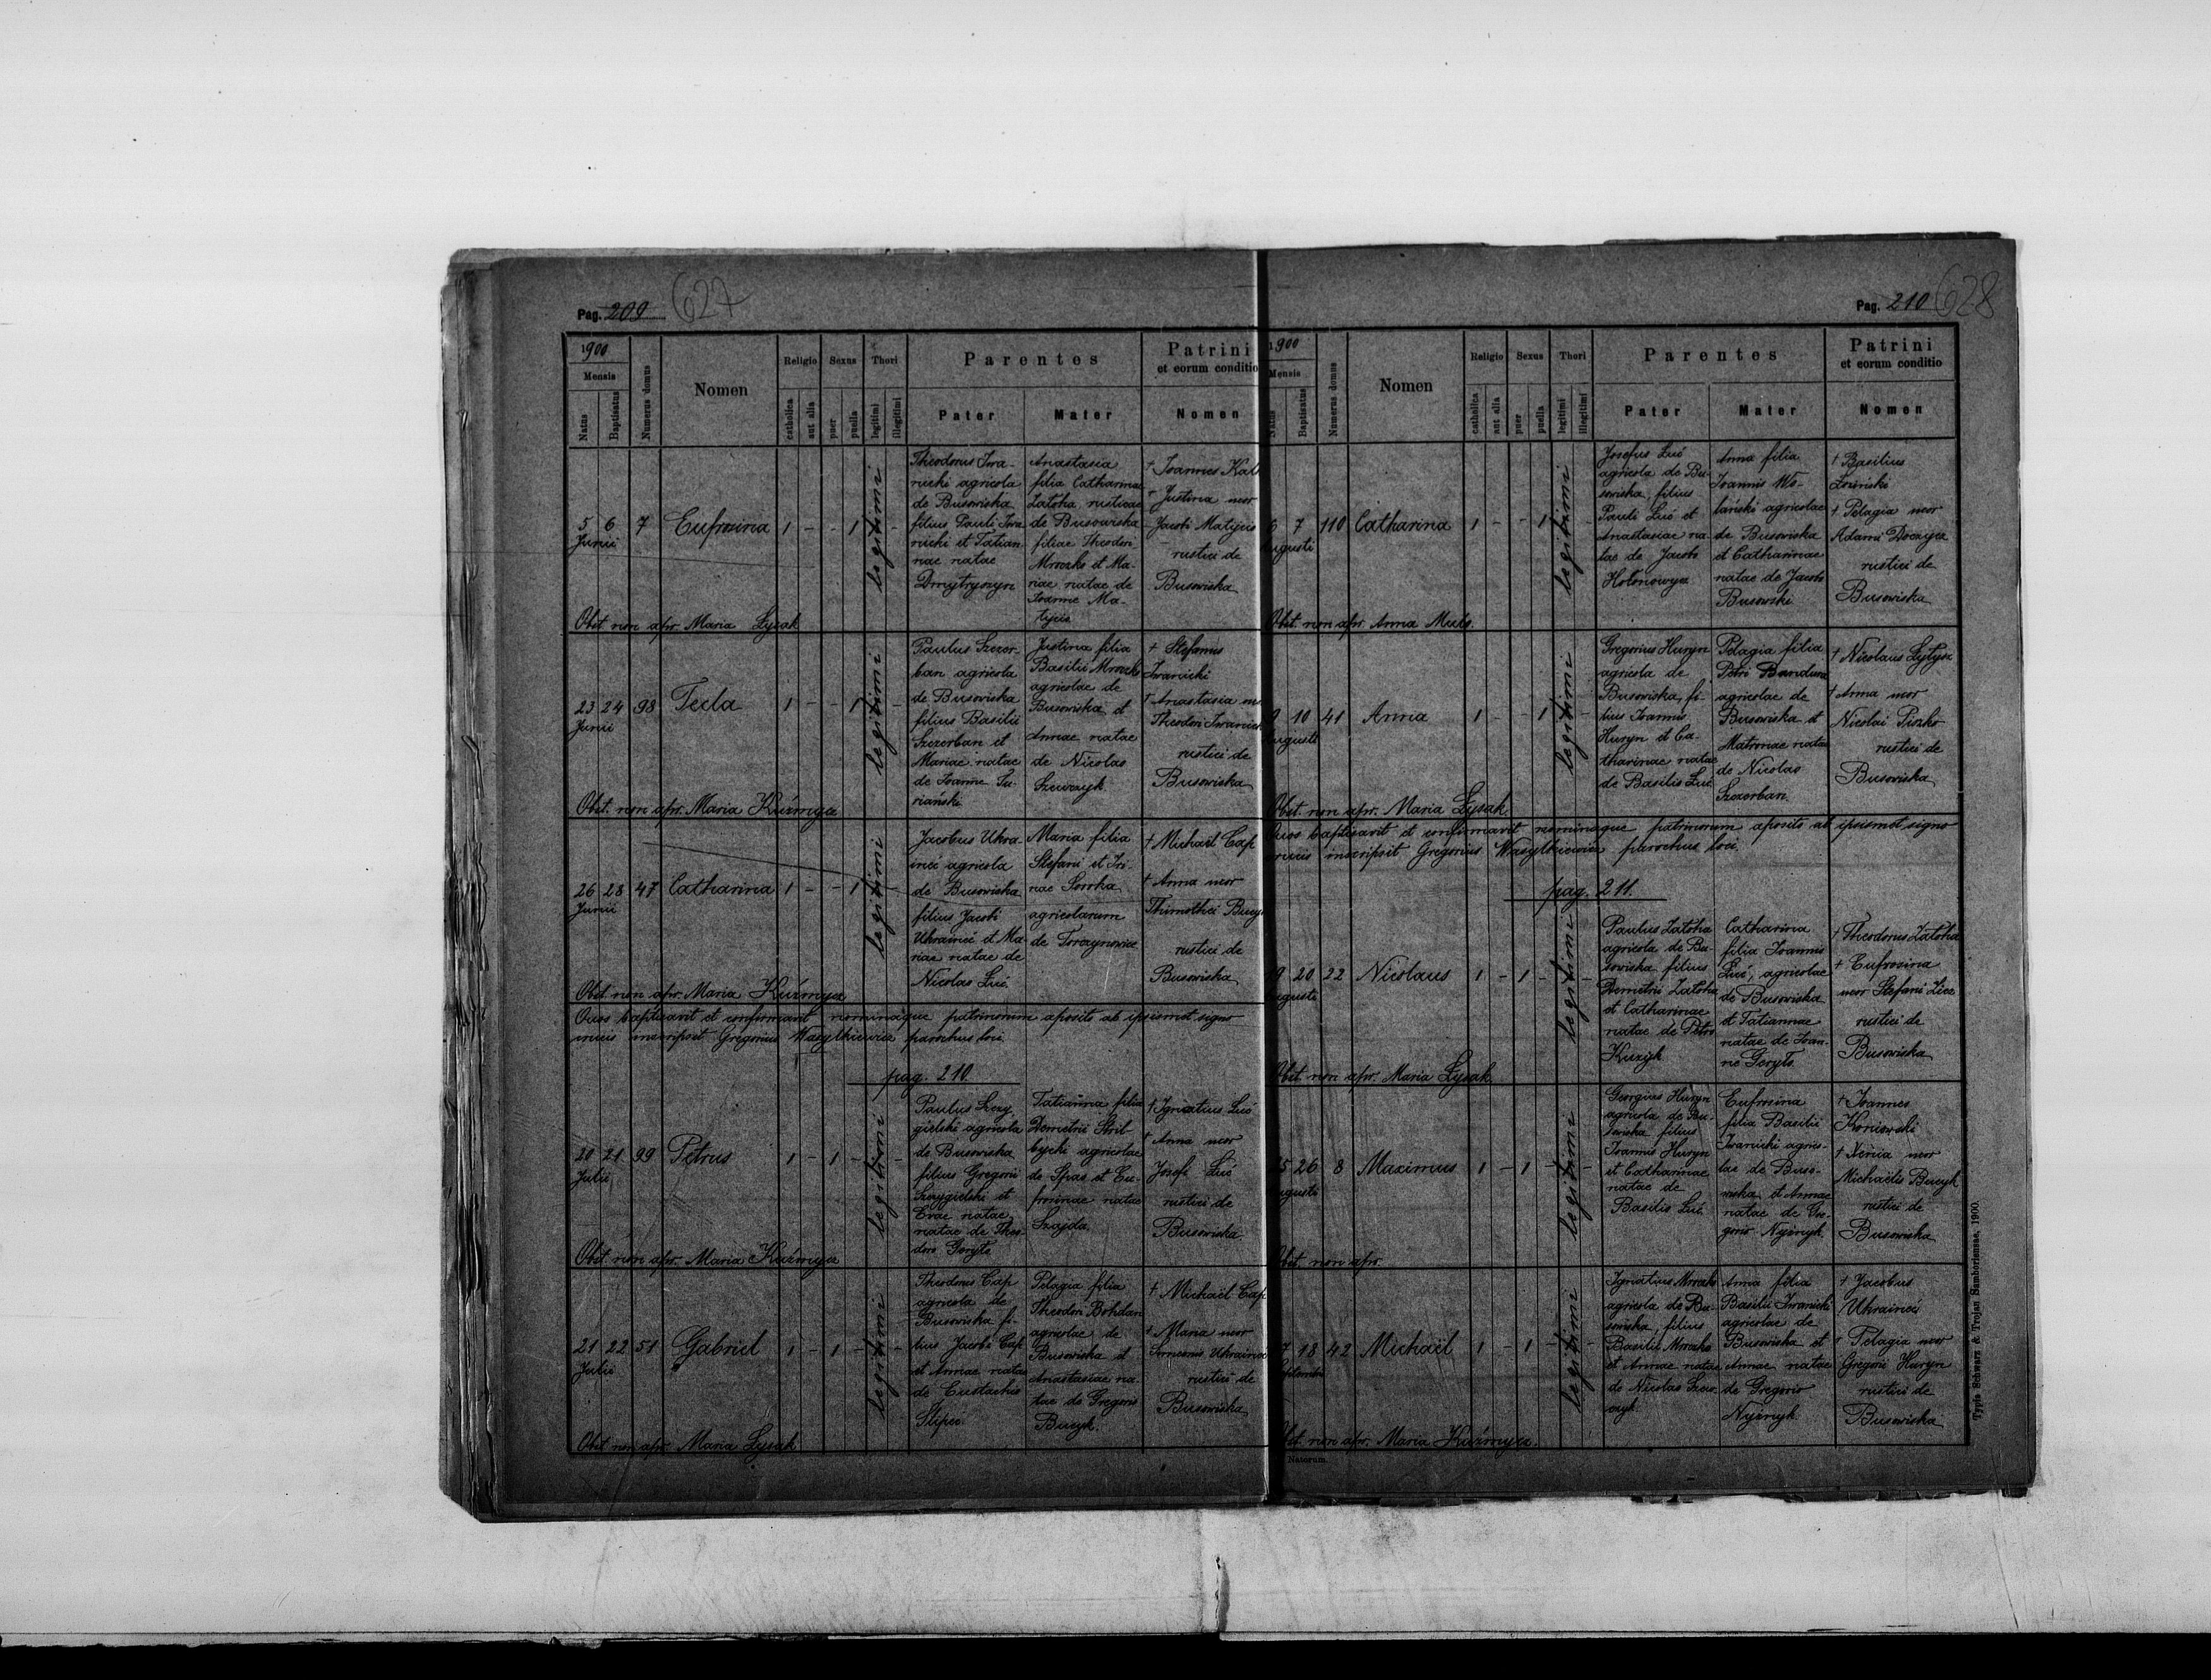 Pag. 209 627
1900
Mensis
Natus
Baptisatus
Numerus domus
Nomen
Religio
catholica
aut alia
Sexus
puer
puella
Thori
legitimi
illegitimi
Parentes
Pater
Mater
Patrini
et eorum conditio
Nomen
5 6 7 Eufrosina 1 - - 1 legitimi -
Junii
Theodorus Iwa-
nicki agricola
de Busowiska
filius Pauli Iwa
nicki et Tatian
nae natae
Dmytryszyn
Anastasia
filia Catharinae
Zatoka rusticae
de Busowiska
filiae Theodori
Mroczko et Ma-
riae natae de
Joanne Ma-
tycio
† Joannes
† Justina uxor
Jacobi
rustici de
Busowiska
Obst. non apr. Maria Łysak
23 24 98 Tecla 1 - - 1 legitimi -
Junii
Paulus Szczer-
ban agricola
de Busowiska
filius Basilii
Szczerban et
Mariae natae
de Joanne Su-
riański
Justina filia
Basilii Mroczko
agricolae de
Busowiska et
Annae natae
de Nicolao
Szewczyk
† Stefanus
Iwanicki
† Anastasia
Theodori Iwanicki
rustici de
Busowiska
Obst. non apr. Maria Kuźmycz
26 28 47 Catharina 1 - - 1 legitimi -
Junii
Jacobus Ukra-
inéć agricola
de Busowiska
filius Jacobi
Ukrainéć et Ma-
riae natae de
Nicolao Łuć.
Maria filia
Stefani et Iri-
nae
agricolarum
de Torczynowice
† Michaël Cap
† Anna uxor
Thimothei
rustici de
Busowiska
Obst. non apr. Maria Kuźmycz
Quos baptisavit et confirmavit nominaque patrinorum aposito ab ipsismet signo
crucis inscripsit Gregorius Wasylkiewicz parochus loci.
pag. 210.
20 21 99 Petrus 1 - 1 - legitimi -
Julii
Paulus Szczy
gielski agricola
de Busowiska
filius Gregorii
Szczygielski et
Evae natae
natae de Theo-
doro Goryts
Tatianna filia
Demetrii Stril-
bycki agricolae
de Spas et Eu-
frosinae natae
Szajda.
† Ignatius Łuć
† Anna uxor
Josefi Łuć
rustici de
Busowiska
Obst. non apr. Maria Kuźmycz
21 22 51 Gabriel 1 - 1 - legitimi -
Julii
Theodorus Cap
agricola de
Busowiska fi-
lius Jacobi Cap
et Annae natae
de Eustachio
Slipec
Pelagia filia
Theodori Bohdan
agricolae de
Busowiska et
Anastasiae na-
tae de Gregorio
Bucyk.
† Michaël Cap
† Maria uxor
rustici de
Busowiska
Obst. non apr. Maria Łysak
Pag. 210 628
1900
Mensis
Natus
Baptisatus
Numerus domus
Nomen
Religio
catholica
aut alia
Sexus
puer
puella
Thori
legitimi
illegitimi
Parentes
Pater
Mater
Patrini
et eorum conditio
Nomen
6 7 110 Catharina 1 - - 1 legitimi -
Augusti
Josefus Łuć
agricola de Bu-
sowiska, filius
Pauli Łuć et
Anastasiae na-
tae de Jacobo
Hołonowycz
Anna filia
Joannis Wo-
lański agricolae
de Busowiska
et Catharinae
natae de Jacobo
Busowski
† Basilius
† Pelagia uxor
Adami
rustici de
Busowiska
Obst. non apr. Anna
9 10 41 Anna 1 - - 1 legitimi -
Augusti
Gregorius Huryn
agricola de
Busowiska, fi-
lius Joannis
Huryn et Ca-
tharinae natae
de Basilio Łuć.
Pelagia filia
Petri Bandura
agricolae de
Busowiska et
Matronae natae
de Nicolao
Szczerban.
† Nicolaus Łytysz
† Anna uxor
Nicolai
rustici de
Busowiska
Obst. non apr. Maria Łysak
Quos baptisavit et confirmavit nominaque patrinorum aposito ab ipsismet signo
crucis inscripsit Gregorius Wasylkiewicz parochus loci.
pag. 211.
19 20 22 Nicolaus 1 - 1 - legitimi -
Augusti
Paulus Zatoka
agricola de Bu-
sowiska filius
Demetrii Zatoka
et Catharinae
natae de Petro
Kuzyk
Catharina
filia Joannis
Łuć, agricolae
de Busowiska
et Tatiannae
natae de Joan-
ne Goryts.
† Theodorus Zatoka
† Eufrosina
uxor Stefani
rustici de
Busowiska
Obst. non apr. Maria Łysak
25 26 8 Maximus 1 - 1 - legitimi -
Augusti
Georgius Huryn
agricola de Bu-
sowiska filius
Joannis Huryn
et Catharinae
natae de
Basilio Łuć.
Eufrosina
filia Basilii
Iwanicki agrico-
lae de Buso-
wiska et Annae
natae de Gre-
gorio Nyżnyk.
† Joannes
Koniowski
† Xenia uxor
Michaëlis Bucyk
rustici de
Busowiska
Obst. non apr.
17 18 42 Michaël 1 - 1 - legitimi -
Septembris
Ignatius Mroczko
agricola de Bu-
sowiska, filius
Basilii Mroczko
et Annae natae
de Nicolao Szew-
czyk.
Anna filia
Basilii Iwanicki
agricolae de
Busowiska et
Annae natae
de Gregorio
Nyżnyk.
† Jacobus
Ukrainéć
† Pelagia uxor
Gregorii Huryn
rustici de
Busowiska
Obst. non apr. Maria Kuźmycz.
Natorum.
Typis Schwarz & Trojan Samboriensae, 1900.